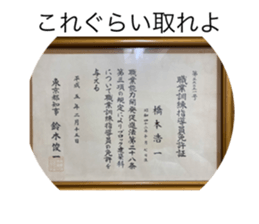 これぐらい取れよ
職業訓練指導員免許証
橋本浩一
職業能力開発促進法第二十八条
第三項の規定によりブロック建築科
について職業訓練指導員の免許を
与える
平成五年二月十五日
東京都知事 鈴木俊一